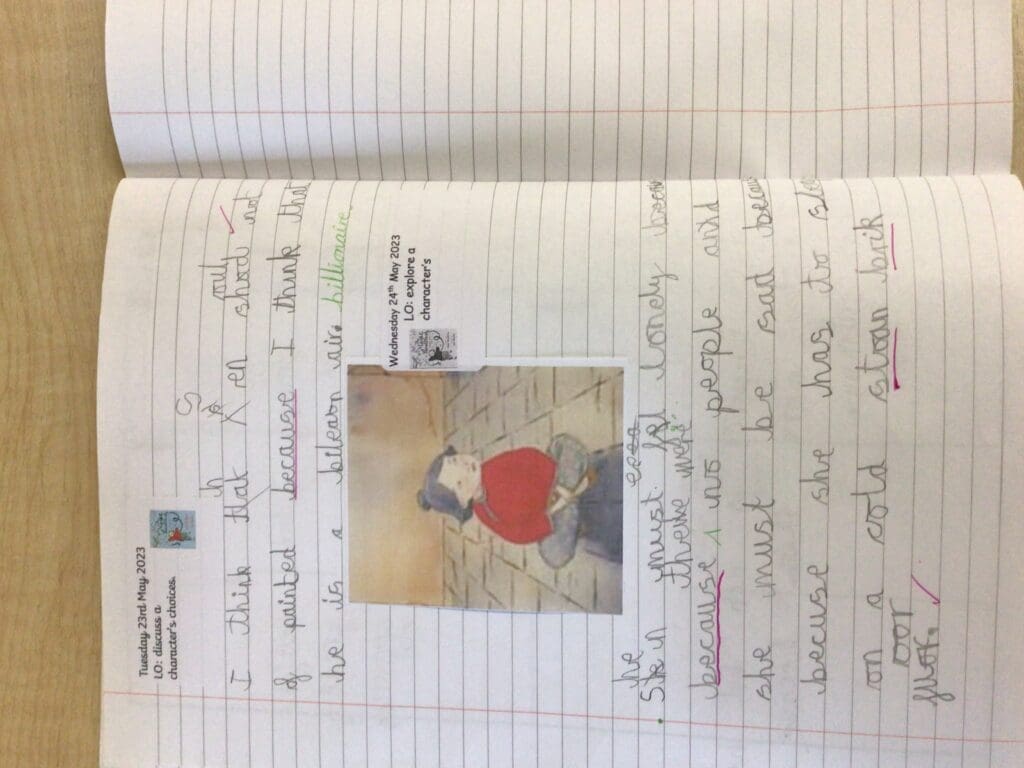 Tuesday 23rd May 2023
LO: discuss a
character's choices.
h G oul
I think that en shod not
of painted because I think that
he is a bilearn air. billionaire
Wednesday 24th May 2023
LO: explore a
character's
he
must lonely
there were
because no people and
she must be sad
becuse she has to
on a cold stoan brik
oor
flor.